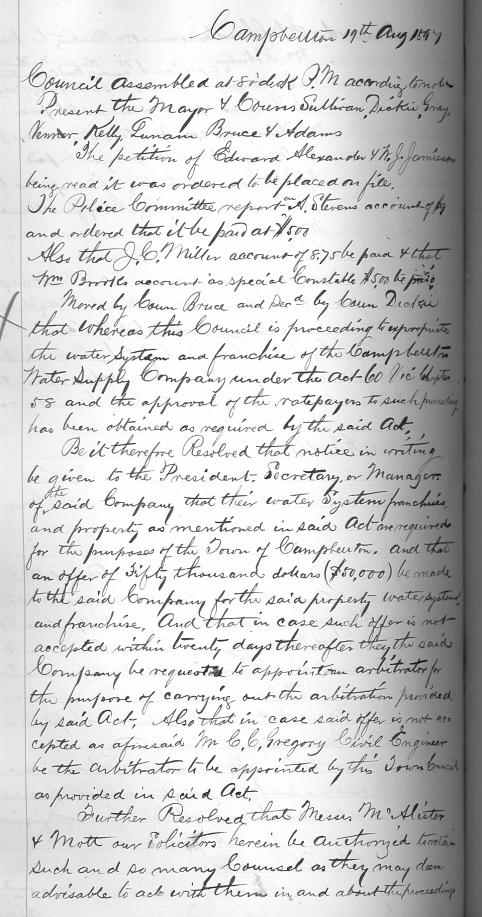 Campbellton 19th Aug 1897
Council assembled at 8 o'clock P.M according to notice
Present the Mayor & Couns Sullivan, Dickie, Gray,
Venner, Kelly, Lunam Bruce & Adams
The petition of Edward Alexander & W. J. Jamieson
being read it was ordered to be placed on file.
The Police Committee report on A. Stevens account of $9
and ordered that it be paid at $5.00
Also that J. C. Miller account of 8.75 be paid & that
Wm Brooks account as special Constable $5.00 be paid.
Moved by Coun Bruce and Secd by Coun Dickie
that Whereas this Council is proceeding to expropriate
the water System and franchise of the Campbellton
Water Supply Company under the Act 60 Vic Chapter
58 and the approval of the ratepayers to such proceeding
has been obtained as required by the said Act,
Be it therefore Resolved that notice in writing
be given to the President, Secretary, or Manager
of the said Company that their water System franchise,
and property as mentioned in said Act are required
for the purposes of the Town of Campbellton. And that
an offer of Fifty thousand dollars ($50,000) be made
to the said Company for the said property water system,
and franchise. And that in case such offer is not
accepted within twenty days thereafter they the said
Company be requested to appoint an arbitrator for
the purpose of carrying out the arbitration provided
by said Act, Also that in case said offer is not ac
cepted as aforesaid Mr C. C. Gregory Civil Engineer
be the Arbitrator to be appointed by this Town Council
as provided in said Act.
Further Resolved that Messrs McAlister
& Mott our Solicitors herein be authorized to retain
such and so many Counsel as they may deem
advisable to act with them in and about the proceeding